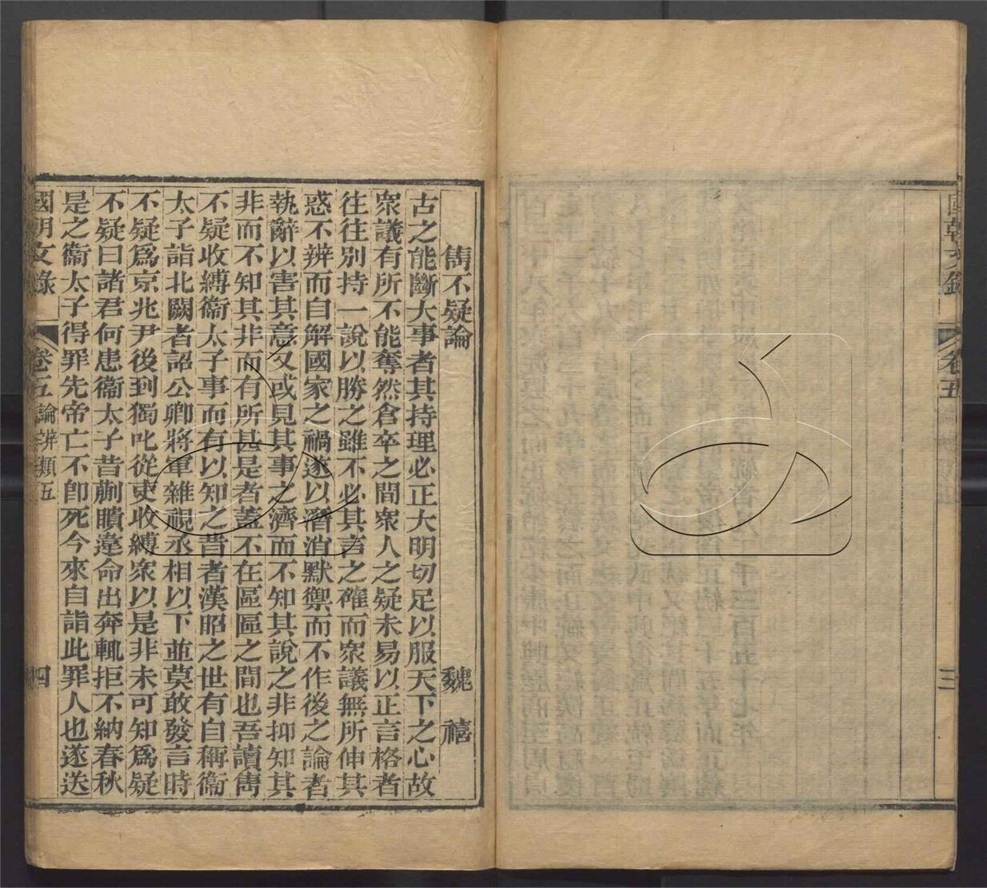 國朝文錄 卷五 三
雋不疑論 魏禧
古之能斷大事者其持理必正大明切足以服天下之心故
衆議有所不能奪然倉卒之間衆人之疑未易以正言格者
往往别持一說以勝之雖不必其言之確而衆議無所伸其
惑不辨而自解國家之禍遂以潛消默禦而不作後之論者
執辭以害其意又或見其事之濟而不知其說之非抑知其
非而不知其非而有所甚是者蓋不在區區之間也吾讀雋
不疑收縛衞太子事而有以知之昔者漢昭之世有自稱衞
太子詣北闕者詔公卿將軍雜視丞相以下並莫敢發言時
不疑爲京兆尹後到獨叱從吏收縛衆以是非未可知爲疑
不疑曰諸君何患衞太子昔蒯聵違命出奔輒拒不納春秋
是之衞太子得罪先帝亡不卽死今來自詣此罪人也遂送
國朝文錄 卷五 論辨類五 四